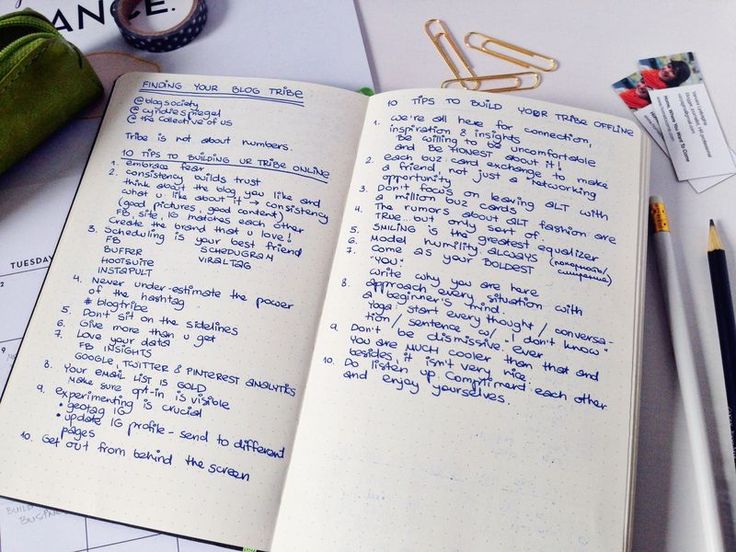 ANCE.
TUESDAY
FINDING YOUR BLOG TRIBE
@blogsociety
@cyndiespiegel
@the collective of us
Tribe is not about numbers.
10 TIPS TO BUILDING UR TRIBE ONLINE
1. embrace fear
2. consistency builds trust
think about the blog you like and
what u like about it → consistency
(good pictures, good content)
FB, site, IG matches each other
Create the brand that u love!
3. Scheduling is your best friend
FB SCHEDUGRAM
BUFFER VIRALTAG
HOOTSUITE
INSTAPULT
4. Never under-estimate the power
of the hashtag
# blogtribe
5. Don't sit on the sidelines
6. Give more than u get
7. Love your data
FB INSIGHTS
GOOGLE, TWITTER & PINTEREST ANALYTICS
8. Your EMAIL LIST IS GOLD
Make sure opt-in is visible
9. experimenting is crucial
• geotag IG
• update IG profile - send to different
pages
10. Get out from behind the screen
10 TIPS TO BUILD YOUR TRIBE OFFLINE
1. we're all here for connection,
inspiration & insights
Be willing to be uncomfortable
and BE HONEST about it!
2. each buz card exchange to make
a friend not just a "networking
opportunity
3. Don't focus on leaving ALT with
a million buz cards
4. The rumors about ALT fashion are
TRUE... but only sort of.
5. SMILING is the greatest equalizer
6. Model humility ALWAYS
7. Come as your BOLDEST
"YOU".
Write why you are here
8. approach every situation with
a beginner's mind.
Yoga: start every thought / conversa-
tion / sentence w/ "I don't know"
9. Don't be dismissive. ever
You are MUCH cooler than that and
besides, it isn't very nice
10. Do listen up. Compliment each other
and enjoy yourselves.